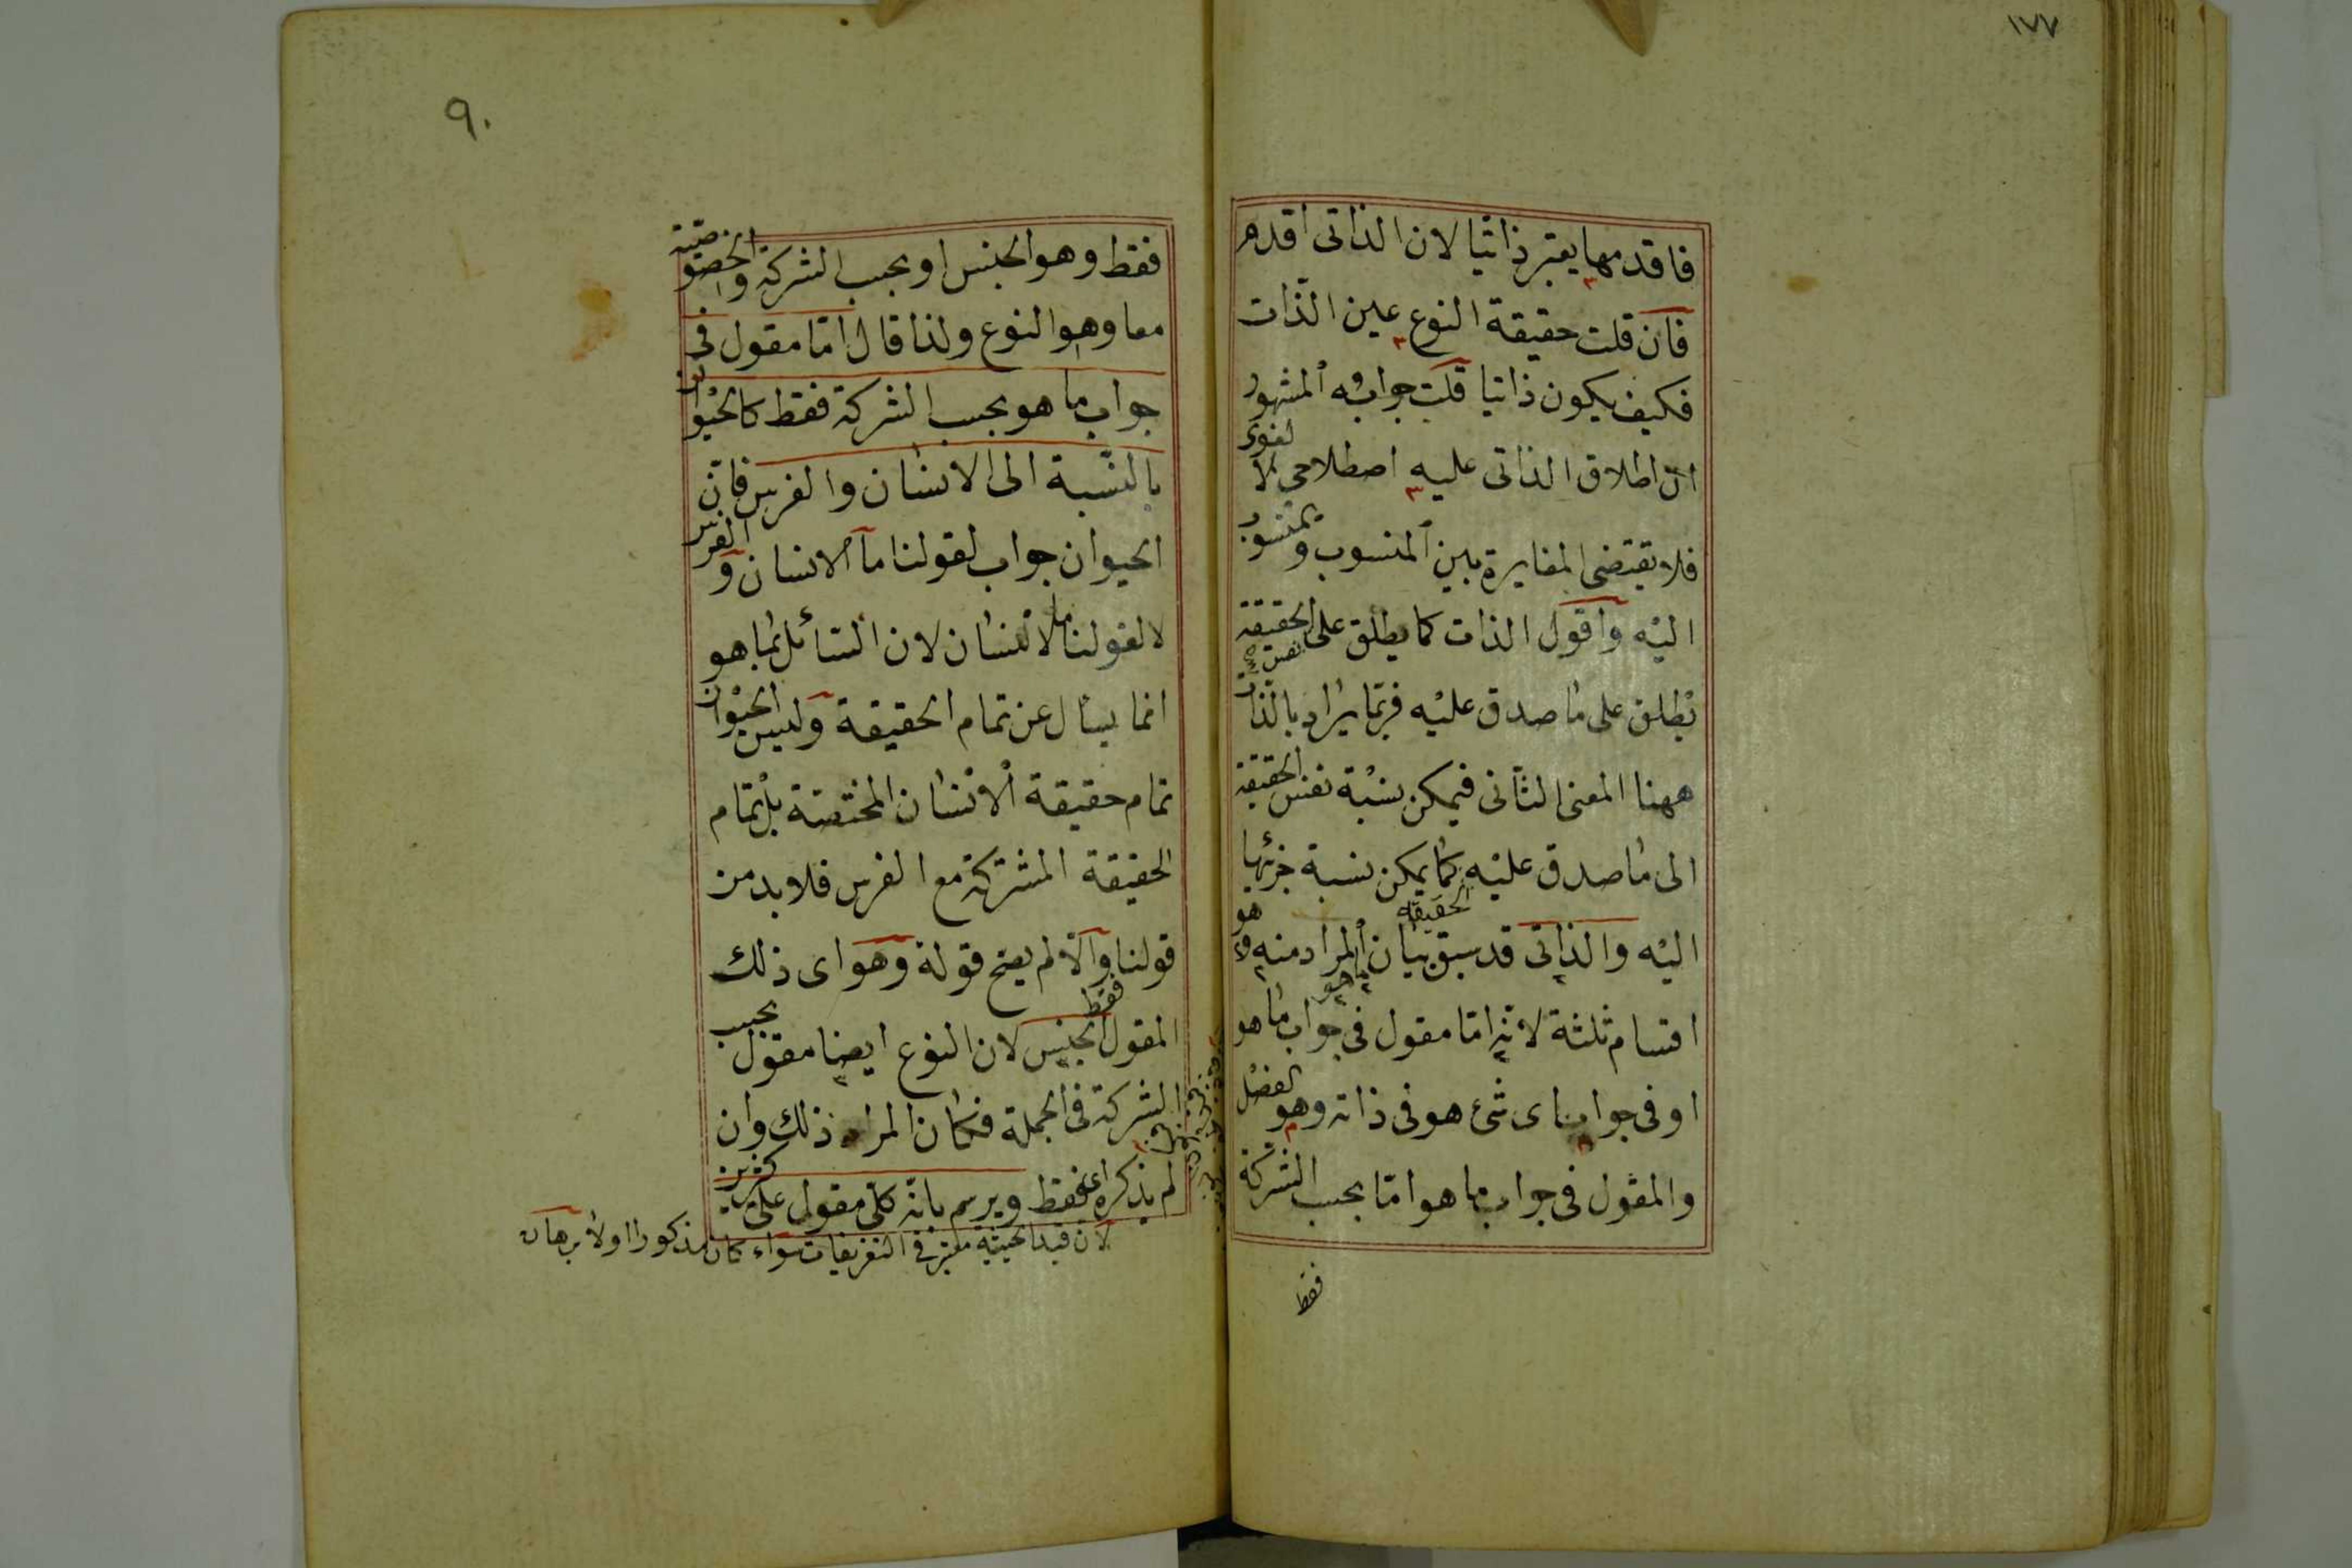 ١٧٧
فاقدمها يعتبر ذاتيا لان الذاتى اقدم
فان قلت حقيقة النوع عين الذات
فكيف يكون ذاتيا قلت جوابه المشهور
ان اطلاق الذاتى عليه اصطلاحى لا لغوى
فلا يقتضى المغايرة بين المنسوب والمنسوب
اليه واقول الذات كما يطلق على الحقيقة
يطلق على ما صدق عليه فربما يراد بالذات
ههنا المعنى الثانى فيمكن نسبة نفس الحقيقة
الى ما صدق عليه كما يمكن نسبة جزئها
اليه والذاتى قد سبق بيان المراد منه وهو
اقسام ثلثة لانه اما مقول فى جواب ما هو
او فى جواب اى شئ هو فى ذاته وهو الفصل
والمقول فى جواب ما هو اما بحسب الشركة
فقط
٩٠
فقط وهو الجنس او بحسب الشركة والخصوصية
معا وهو النوع ولذا قال اما مقول فى
جواب ما هو بحسب الشركة فقط كالحيوان
بالنسبة الى الانسان والفرس فان
الحيوان جواب لقولنا ما الانسان والفرس
لا لقولنا ما الانسان لان السائل بما هو
انما يسأل عن تمام الحقيقة وليس الحيوان
تمام حقيقة الانسان المختصة بل تمام
الحقيقة المشتركة مع الفرس فلا بد من
قولنا والا لم يصح قوله وهو اى ذلك
المقول الجنس لان النوع ايضا مقول بحسب
الشركة فى الجملة فكان المراد ذلك وان
لم يذكره اعنى فقط ويرسم بانه كلى مقول على كثيرين
لان قيد الحيثية معتبر فى التعريفات سواء كان مذكورا اولا برهان